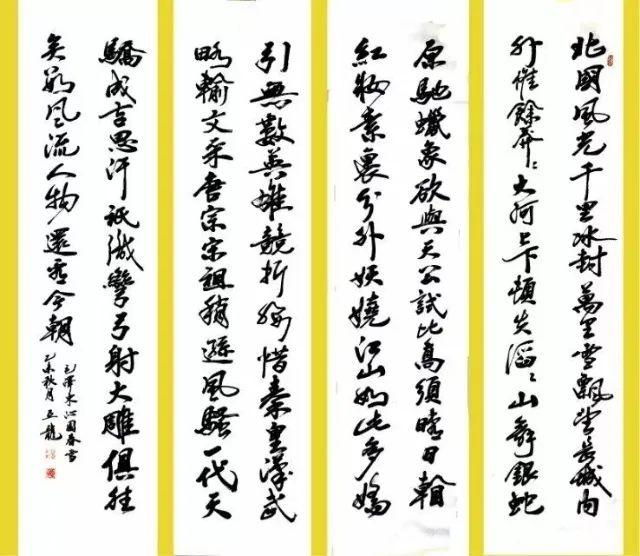 北國風光千里冰封萬里雪飄望長城内
外惟餘莽〻大河上下頓失滔〻山舞銀蛇
原馳蠟象欲與天公試比高須晴日看
紅妝素裹分外妖嬈江山如此多嬌
引無數英雄競折腰惜秦皇漢武
略輸文采唐宗宋祖稍遜風騷一代天
驕成吉思汗祇識彎弓射大雕俱往
矣數風流人物還看今朝
毛澤東沁園春雪
乙未秋月